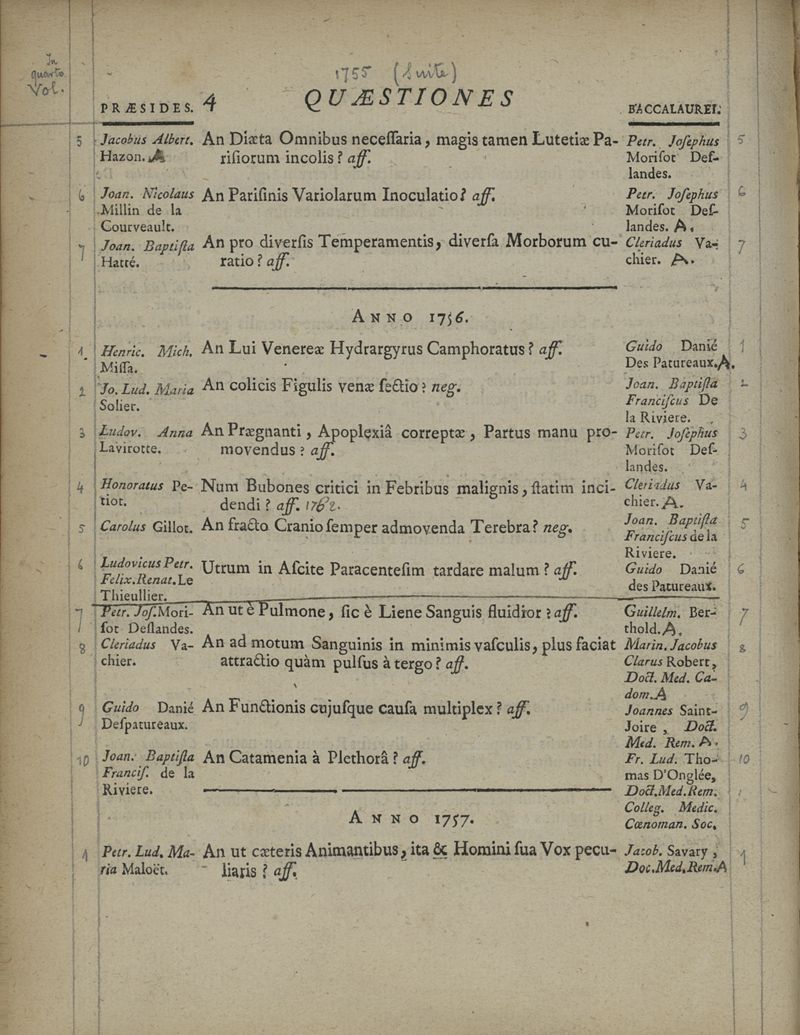 In
quarto
Vol.
1755 (Suite)
PRÆSIDES. 4 QUÆSTIONES BACCALAUREI.
5 Jacobus Albert. An Diæta Omnibus neceſſaria, magis tamen Lutetiæ Pa- Petr. Joſephus 5
Hazon. A riſiorum incolis? aff. Moriſot Deſ-
landes.
6 Joan. Nicolaus An Pariſinis Variolarum Inoculatio? aff. Petr. Joſephus 6
Millin de la Moriſot Deſ-
Courveault. landes. A.
7 Joan. Baptiſta An pro diverſis Temperamentis, diverſa Morborum cu- Cleriadus Va- 7
Hatté. ratio? aff. chier. A.
ANNO 1756.
1 Henric. Mich. An Lui Venereæ Hydrargyrus Camphoratus? aff. Guido Danié 1
Miſſa. Des Patureaux. A.
2 Jo. Lud. Maria An colicis Figulis venæ ſectio? neg. Joan. Baptiſta 2
Solier. Franciſcus De
la Riviere.
3 Ludov. Anna An Prægnanti, Apoplexiâ correptæ, Partus manu pro- Petr. Joſephus 3
Lavirotte. movendus? aff. Moriſot Deſ-
landes.
4 Honoratus Pe- Num Bubones critici in Febribus malignis, ſtatim inci- Cleriadus Va- 4
tiot. dendi? aff. 1762. chier. A.
5 Carolus Gillot. An fracto Cranio ſemper admovenda Terebra? neg. Joan. Baptiſta 5
Franciſcus de la
Riviere.
6 Ludovicus Petr. Utrum in Aſcite Paracenteſim tardare malum? aff. Guido Danié 6
Felix. Renat. Le des Patureaux.
Thieullier.
7 Petr. Joſ. Mori- An ut è Pulmone, ſic è Liene Sanguis fluidior? aff. Guillelm. Ber- 7
ſot Deſlandes. thold. A.
8 Cleriadus Va- An ad motum Sanguinis in minimis vaſculis, plus faciat Marin. Jacobus 8
chier. attractio quàm pulſus à tergo? aff. Clarus Robert,
Doct. Med. Ca-
dom. A
9 Guido Danié An Functionis cujuſque cauſa multiplex? aff. Joannes Saint- 9
Deſpatureaux. Joire, Doct.
Med. Rem. A.
10 Joan. Baptiſta An Catamenia à Plethorâ? aff. Fr. Lud. Tho- 10
Franciſ. de la mas D'Onglée,
Riviere. Doct. Med. Rem.
Colleg. Medic.
ANNO 1757. Cœnoman. Soc.
1 Petr. Lud. Ma- An ut cæteris Animantibus, ita & Homini ſua Vox pecu- Jacob. Savary, 1
ria Maloët. liaris? aff. Doc. Med. Rem. A